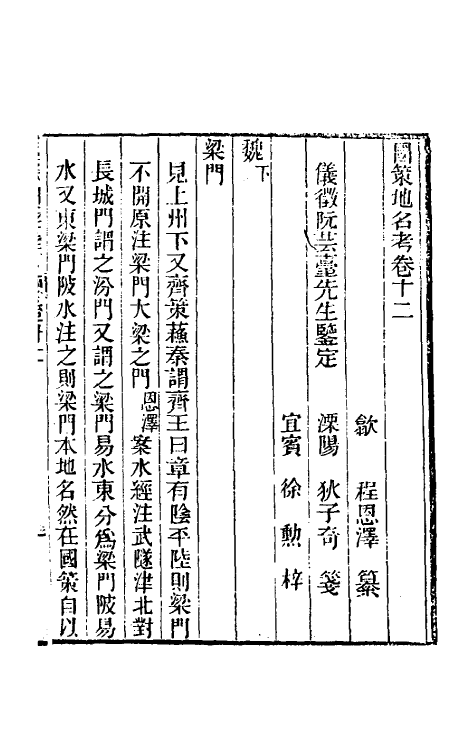 國策地名考卷十二
歙　程恩澤　纂
儀徵阮芸臺先生鑒定　溧陽　狄子奇　箋
宜賓　徐勲　梓
魏下
梁門
見上州下又齊策蘇秦謂齊王曰章有陰平陸則梁門
不開原注梁門大梁之門恩澤案水經注武隧津北對
長城門謂之汾門又謂之梁門易水東分爲梁門陂易
水又東梁門陂水注之則梁門本地名然在國策自以